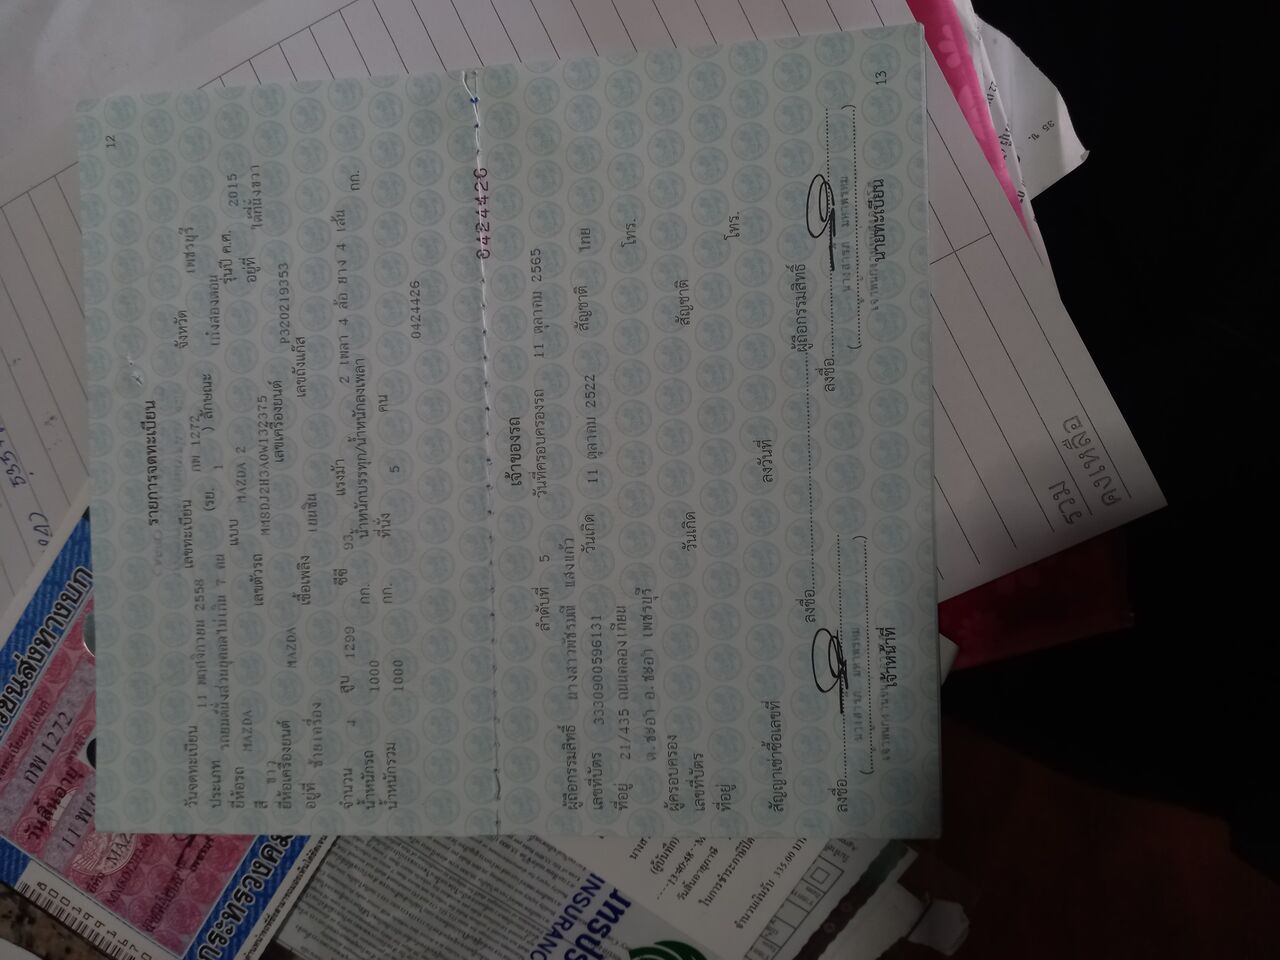 12
รายการจดทะเบียน
วันจดทะเบียน 11 พฤศจิกายน 2558 เลขทะเบียน กพ 1272 จังหวัด เพชรบุรี
ประเภท รถยนต์นั่งส่วนบุคคลไม่เกิน 7 คน (รย. 1 ) ลักษณะ เก๋งสองตอน
ยี่ห้อรถ MAZDA แบบ MAZDA 2 รุ่นปี ค.ศ. 2015
สี ขาว เลขตัวรถ MM8DJ2H3A0W132375 อยู่ที่ ใต้ที่นั่งขวา
ยี่ห้อเครื่องยนต์ MAZDA เลขเครื่องยนต์ P320219353
อยู่ที่ ซ้ายเครื่อง เชื้อเพลิง เบนซิน เลขถังแก๊ส
จำนวน 4 สูบ 1299 ซีซี 93 แรงม้า 2 เพลา 4 ล้อ ยาง 4 เส้น
น้ำหนักรถ 1000 กก. น้ำหนักบรรทุก/น้ำหนักลงเพลา กก.
น้ำหนักรวม 1000 กก. ที่นั่ง 5 คน
0424426
0424426
เจ้าของรถ
ลำดับที่ 5 วันที่ครอบครองรถ 11 ตุลาคม 2565
ผู้ถือกรรมสิทธิ์ นางสาวพัชรมณี แสงแก้ว
เลขที่บัตร 3330900596131 วันเกิด 11 ตุลาคม 2522 สัญชาติ ไทย
ที่อยู่ 21/435 ถนนคลองเทียน โทร.
ต.ชะอำ อ.ชะอำ เพชรบุรี
ผู้ครอบครอง
เลขที่บัตร วันเกิด สัญชาติ
ที่อยู่ โทร.
สัญญาเช่าซื้อเลขที่ ลงวันที่
ลงชื่อ ผู้ถือกรรมสิทธิ์
ลงชื่อ ลงชื่อ
(นางสารภี มหาพรหม) (นางสารภี มหาพรหม)
เจ้าหน้าที่ นายทะเบียน
13
กระทรวงคม
กพ 1272
วันสิ้นอายุ
INSURANC
วันสิ้นอายุภาษี
จำนวนเงินรับ 335.00 บาท
รวม
คงเหลือ